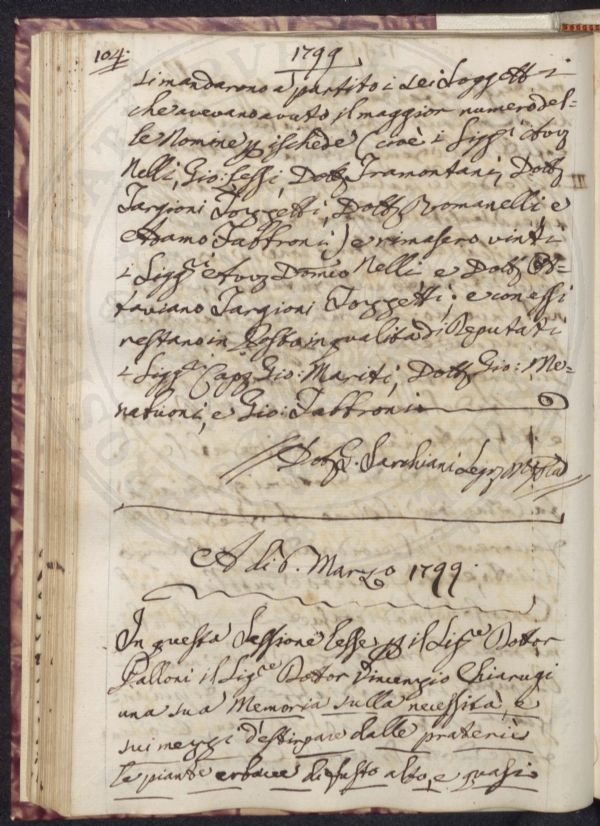 104.
1799
si mandarono a partito i sei Soggetti
che avevano avuto il maggior numero del=
le Nomine p ischede (cioè i Sigg.ri Avv
Nelli, Gio: Lessi, Dott Tramontani, Dott
Targioni Tozzetti, Dott Romanelli, e
Adamo Fabbroni) e rimasero vinti
i Sigg.ri Avv Domco Nelli e Dott Ot=
taviano Targioni Tozzetti; e con essi
restano in Posto in qualità di Deputati
i Sigg.ri Cap Gio: Mariti, Dott Gio: Me=
natuoni, e Gio: Fabbroni
Dott Sarchiani Seg
A di 6. Marzo 1799.
In questa Sessione lesse p il Sig.re Dottor
Galloni il Sig.re Dottor Vincenzio Chiarugi
una sua Memoria sulla necessità, e
sui mezzi d'estirpare dalle praterie
le piante erbacee di fusto alto, e quasi